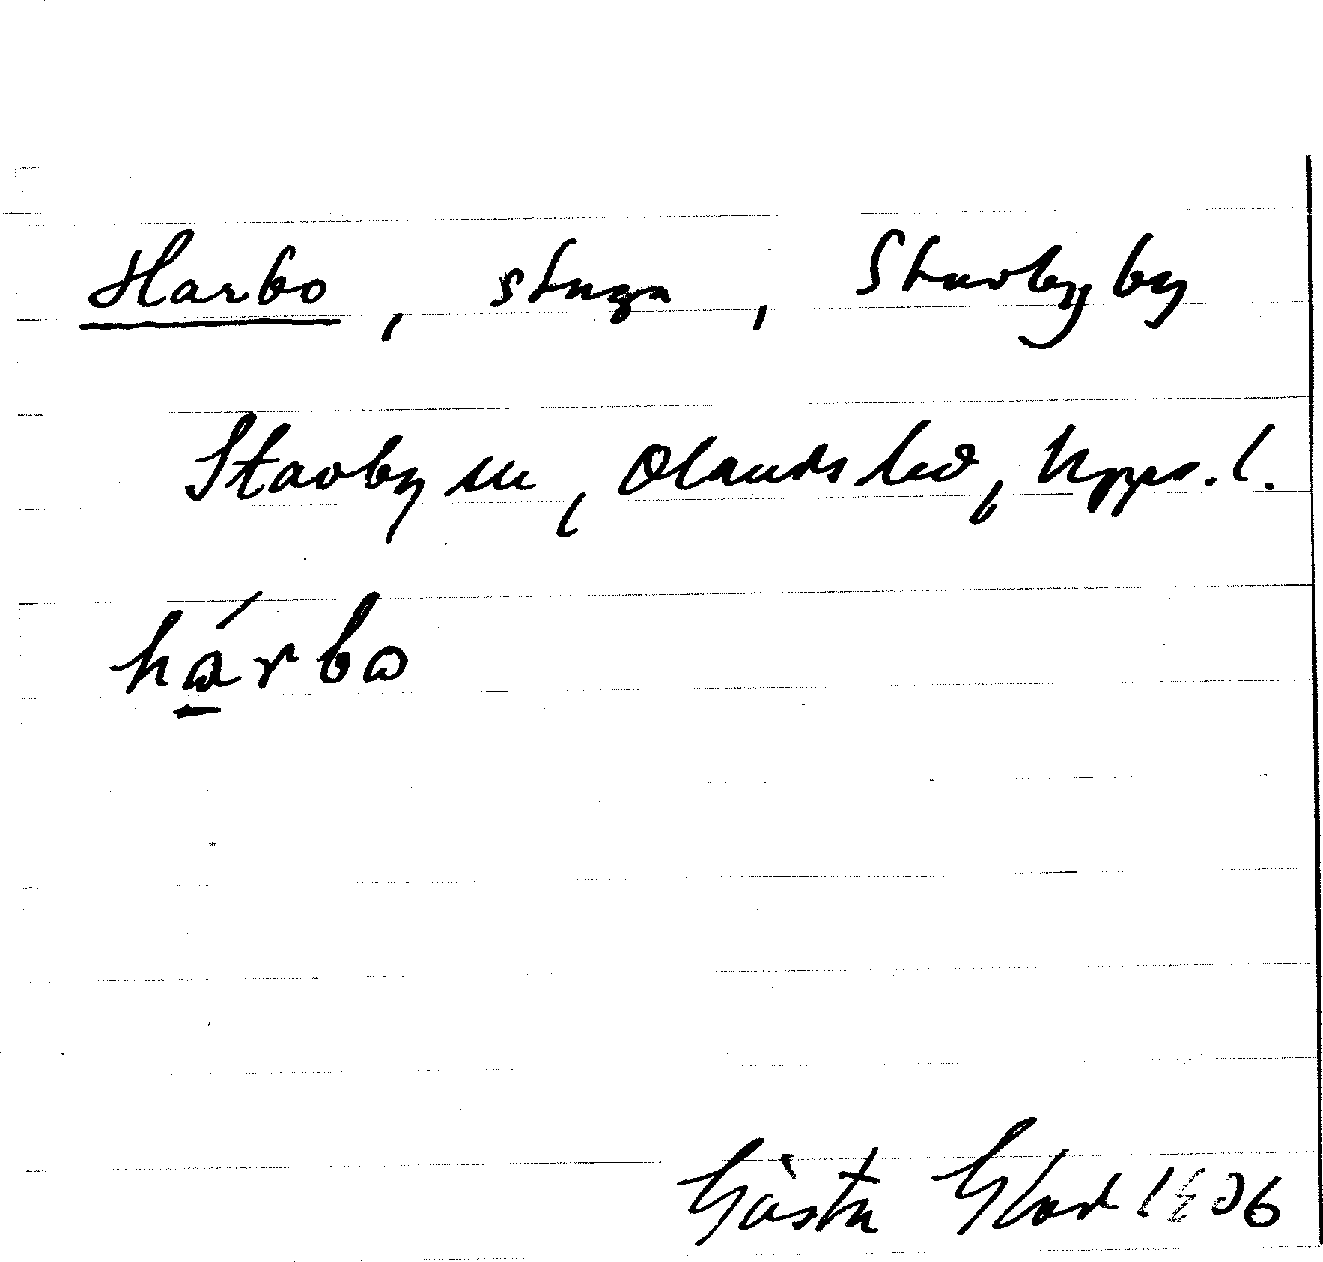 Harbo, stuga, Stavby by
Stavby sn, Olands hd, Upps. l.
hárbo
Gösta Glad